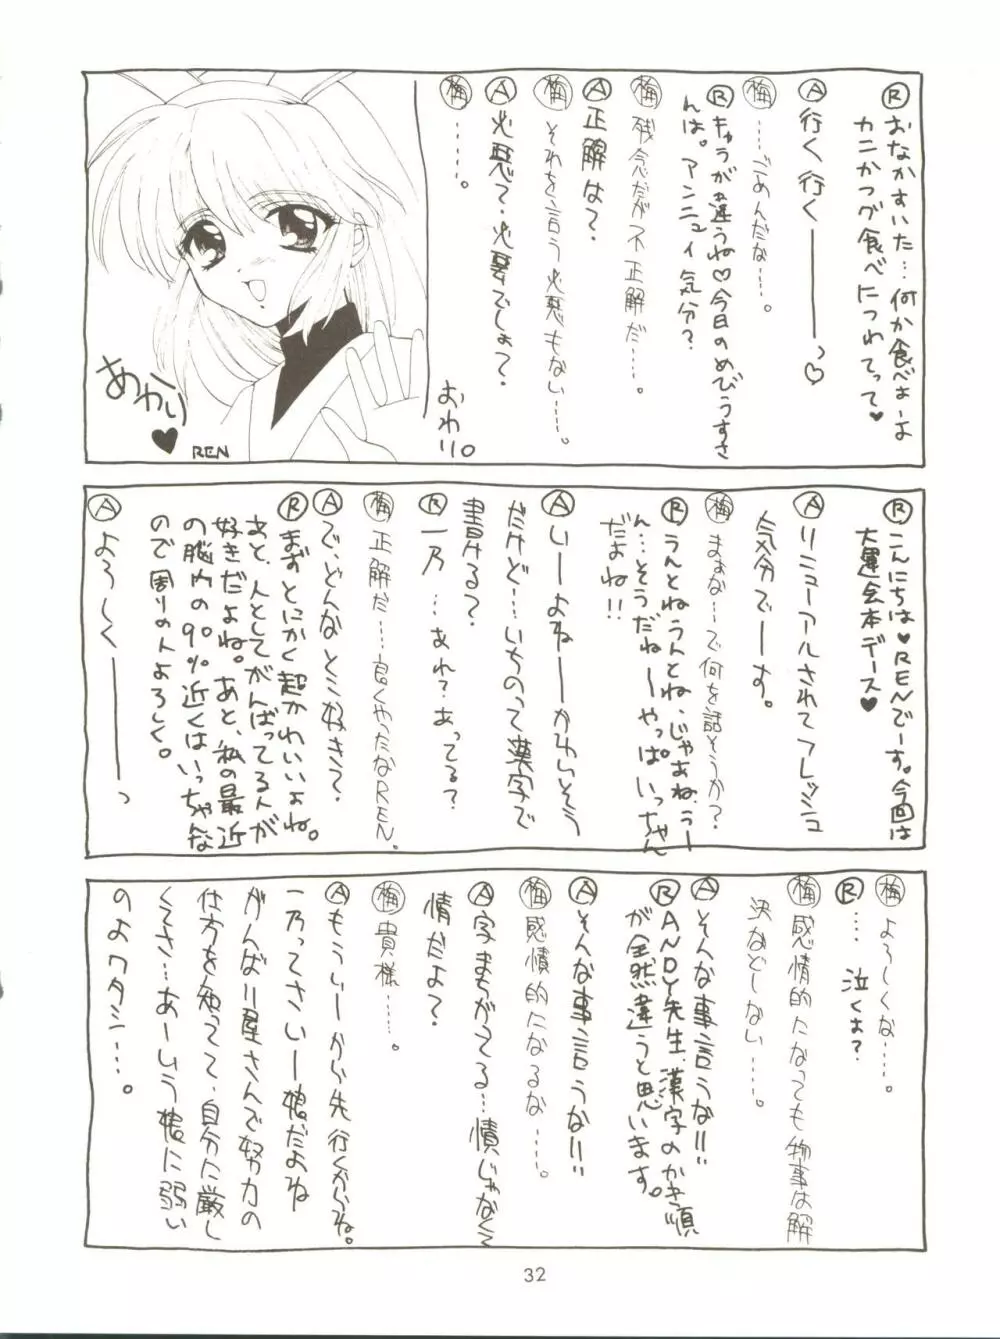 Ⓡおなかすいた…何か食べよーよ
カニかつグ食べにつれてって♥
Ⓐ行く行く――――っ♡
梅……ごめんだな……。
Ⓡキャラが違うね♡今日のめびうすさ
んは。アンニュイ気分？
梅残念だが不正解だ……。
Ⓐ正解は？
梅それを言う必悪もない……。
Ⓐ必悪て・必要でしょ？
梅……。
おわり。
あかり♥
REN
Ⓡこんにちは♥RENでーす。今回は
大運会本デース♥
Ⓐリニューアルされてフレッシュ
気分でーす。
梅まぁな…で何を話そうか？
Ⓡうんとねうんとね、じゃあね、うー
ん…そうだねーやっぱいっちゃん
だよね!!
Ⓐいーよねーかわいそう
だけど…いちのって漢字で
書ける？
Ⓡ一乃…あれ？あってる？
梅正解だ…良くやったなREN。
Ⓐで、どんなとこ好き？
Ⓡまずとにかく超かわいいよね。
あと、人としてがんばってる人が
好きだよね。あと、私の最近
の脳内の90%近くはいっちゃんな
ので周りの人よろしく。
Ⓐよろしく――――っ
梅よろしくな……。
Ⓡ…泣くよ？
梅感情的になっても物事は解
決などしない……。
Ⓐそんな事言うな!!
ⓇANDY先生、漢字のかき順
が全然違うと思います。
Ⓐそんな事言うな!!
梅感憤的になるな……。
Ⓐ字まちがてる…憤じゃなくて
情だよ？
梅貴様……。
Ⓐもういーから先行くからね。
一乃ってさいー娘だよね
がんばり屋さんで努力の
仕方を知ってて、自分に厳し
くてさ…あーいう娘に弱い
のよワタシ…。
32